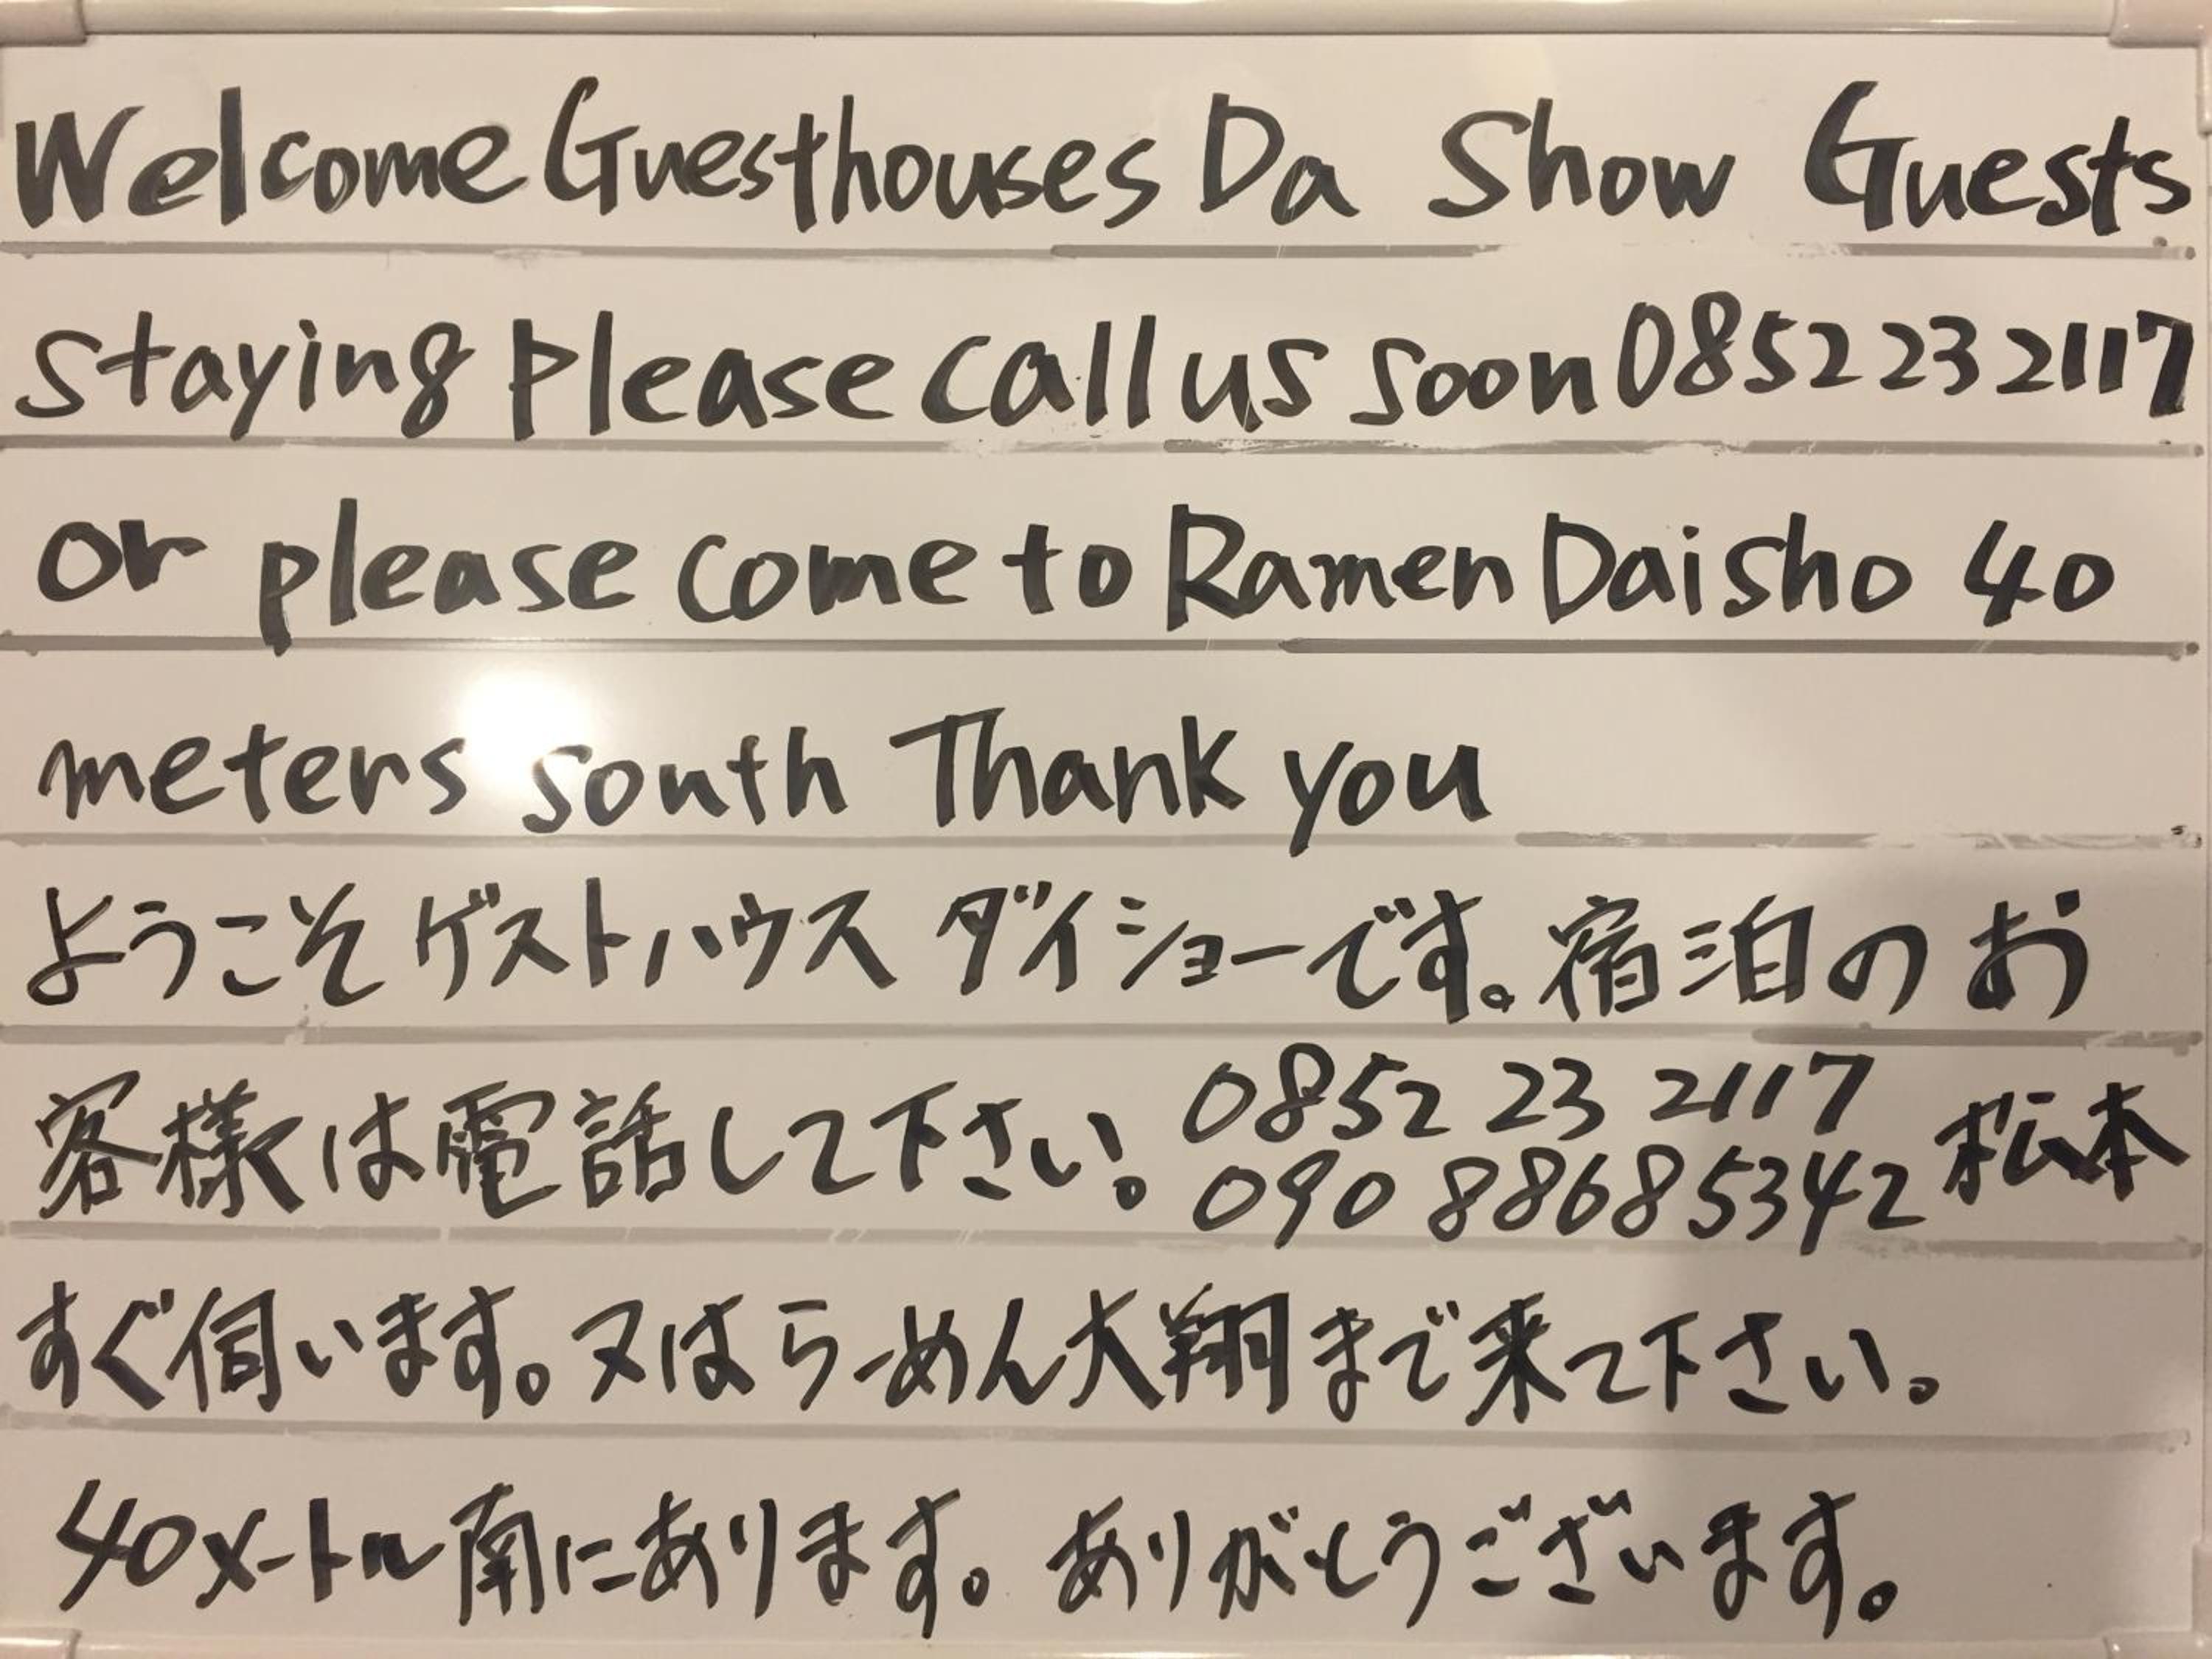 Welcome Guesthouses Da Show Guests
Staying Please call us soon 0852 23 2117
or please come to Ramen Daisho 40
meters south Thank you
ようこそ ゲストハウス ダイショーです。宿泊のお
客様は電話して下さい。0852 23 2117
090 8868 5342 松本
すぐ伺います。又はらーめん大翔まで来て下さい。
40メートル南にあります。ありがとうございます。